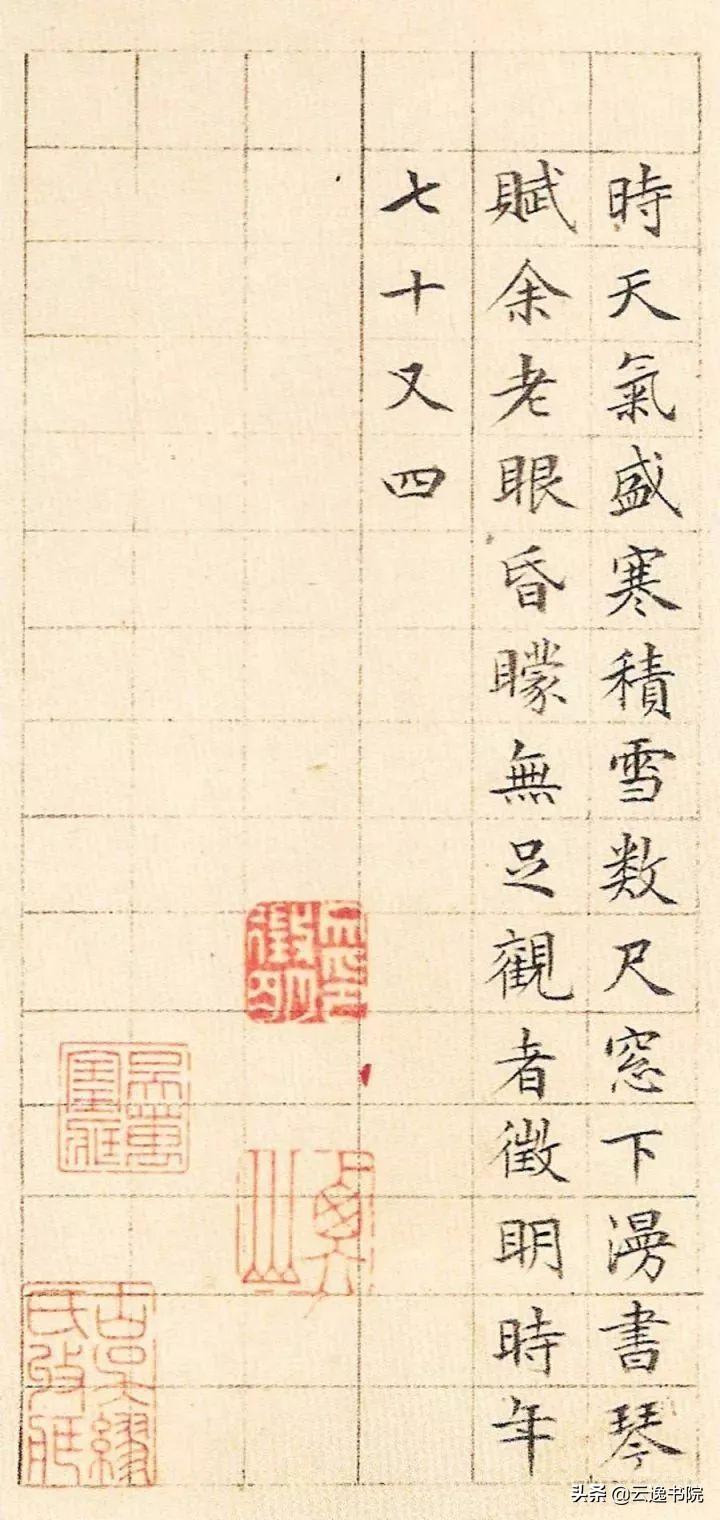 時天氣盛寒積雪数尺窓下漫書琴
賦余老眼昏矇無足觀者徴明時年
七十又四
頭条 @云逸书院